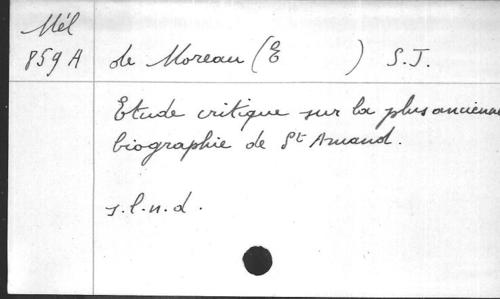 Mél
859 A
de Moreau (E ) S.J.
Etude critique sur la plus ancienne
biographie de St Amand.
s.l.n.d.